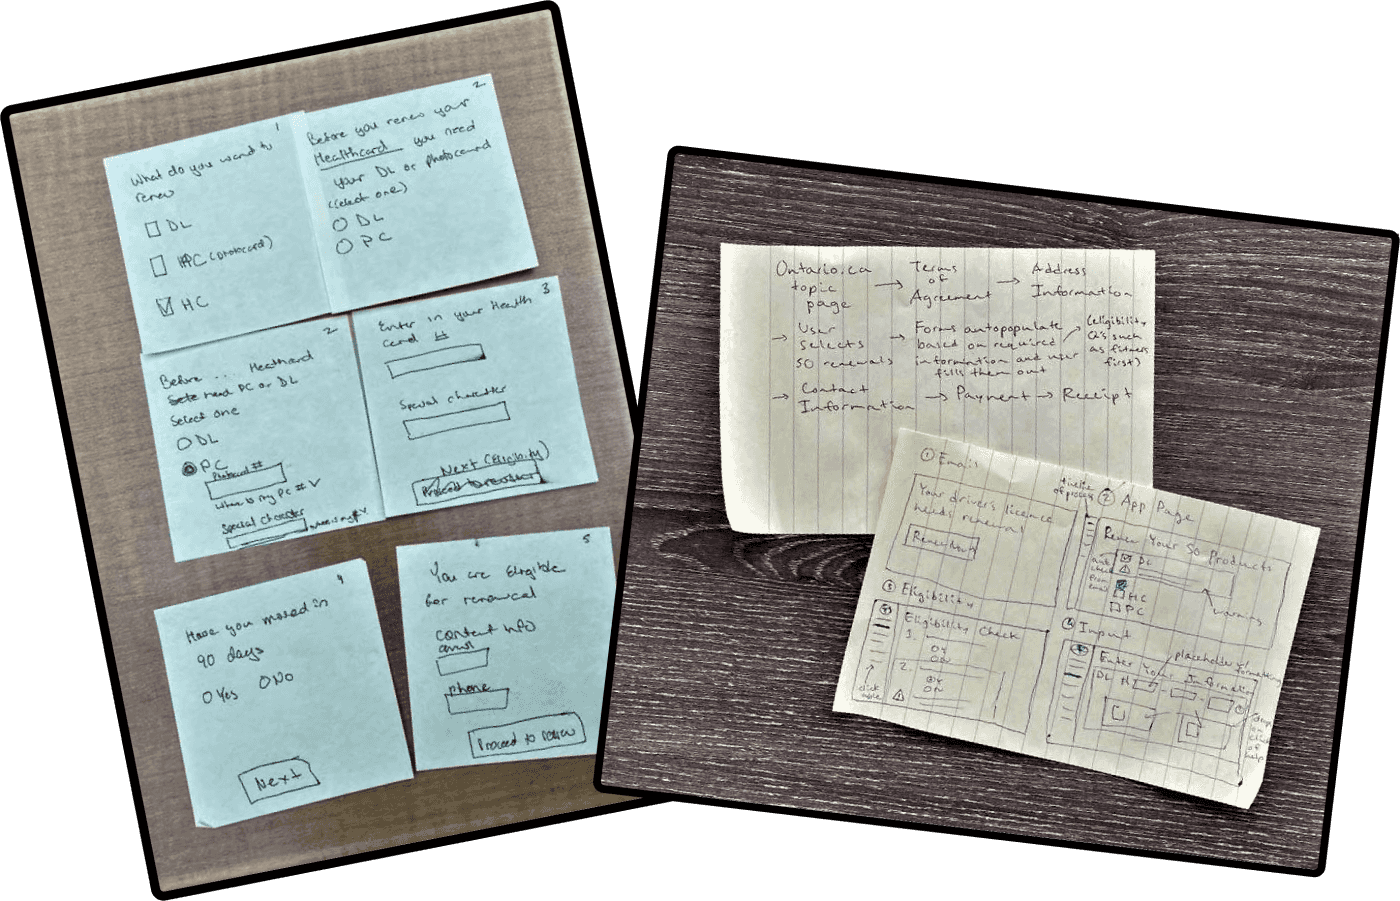 1
What do you want to
renew
DL
PC (photocard)
HC
2
Before you renew your
Healthcard you need
your DL or photocard
(select one)
DL
PC
2
Before .... Healthcard
need PC or DL
Select one
DL
PC
Photocard #
where is my PC # V
Special character
where is my # V
3
Enter in your Health
card #
Special character
Next (Eligibility)
4
Have you moved in
90 days
Yes No
Next
5
You are Eligible
for renewal
contact info
email
phone
Proceed to renew
Ontario.ca topic page → Terms of Agreement → Address Information
→ User selects SO renewals → Forms autopopulate based on required information and user fills them out
(eligibility Q's such as fitness first)
→ Contact Information → Payment → Receipt
① Email
Your driver's licence
needs renewal
Renew Now
timeline of process
② App Page
Renew Your SO Products
DL
HC
PC
from email
warning
③ Eligibility
Eligibility Check
1.
OY
ON
2.
OY
ON
clickable
④ Input
placeholder
formatting
Enter Your Information
DL #